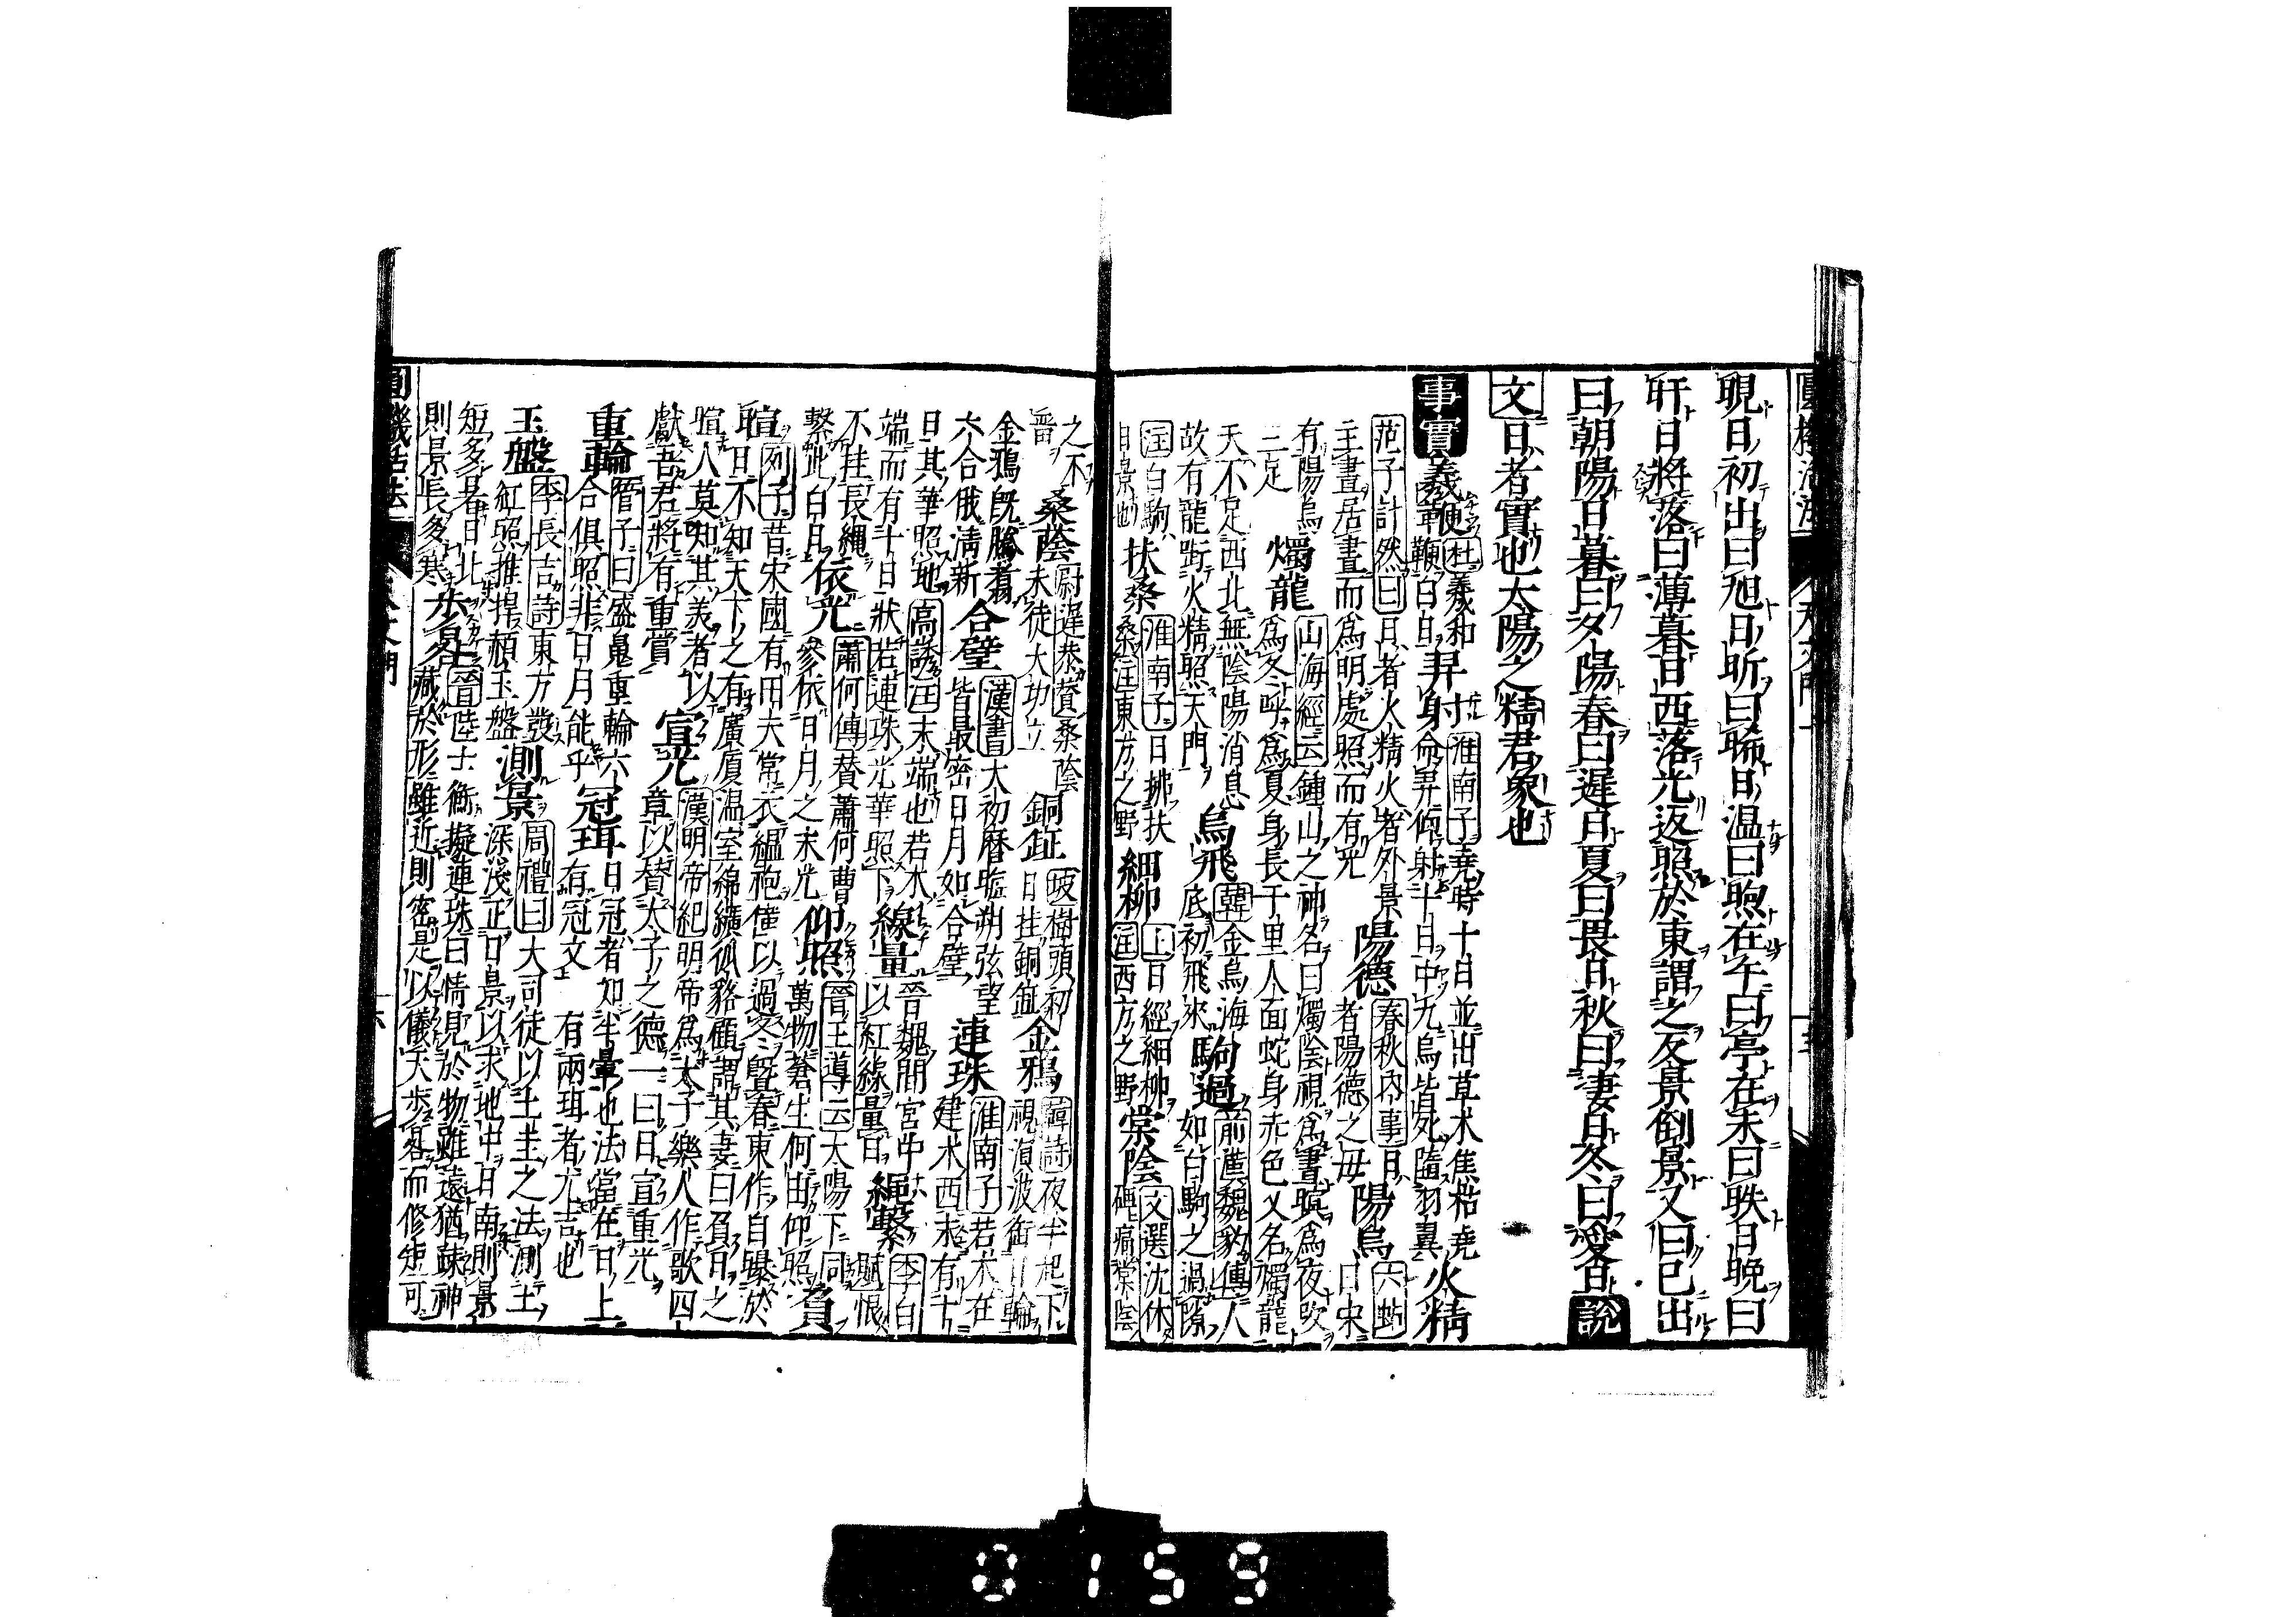 晛日初出曰旭日昕曰晞日温曰煦在午曰亭在未曰昳日晚曰
旰日將落曰薄暮日西落光返照於東謂之反景倒景又曰已出
曰朝陽日暮曰夕陽春曰遲日夏曰畏日秋曰凄日冬曰愛日說
文日者實也太陽之精君象也
事實
羲鞭
杜羲和
鞭白日
羿射
淮南子堯時十日並出草木焦枯堯
命羿仰射十日中九烏皆死墮羽翼
火精
范子計然曰日者火精火者外景
主晝居晝而爲明處照而有光
陽德
春秋内事日
者陽德之母
陽烏
六
日中
有陽烏
三足
燭龍
山海經云鍾山之神名曰燭陰視爲晝暝爲夜吹
爲冬呼爲夏身長千里人面蛇身赤色又名燭龍
天不足西北無陰陽消息
故有龍啣火精照天門
烏飛
韓金烏海
底初飛來
駒過
前漢魏豹傳人
如白駒之過隙
注白駒
日景也
扶桑
淮南子日拂扶
桑注東方之野
細柳
上日經細柳
注西方之野
棠陰
文選沈休
碑痛棠陰
之不
晋
桑蔭
尉遲恭贊桑蔭
未徙大功立
銅鉦
坡樹頭初
日挂銅鉦
金鴉
韓詩夜半起下
視溟波銜日輪
金鴉既騰翥
六合俄淸新
合璧
漢書大初曆晦朔弦望
皆最密日月如合璧
連珠
淮南子若木在
建木西末有十
日其華照地
高誘注末端也若木
端而有十日狀若連珠光華照下
線量
晉魏間宮中
以紅線量日
繩繫
李白
賦恨
不挂長繩
繫此白日
依光
蕭何傳替蕭何曹
參依日月之末光
仰照
晉王導云太陽下同
萬物蒼生何由仰照
負
暄
列子昔宋國有田夫常衣縕袍僅以過冬曁春東作自曝於
日不知天下之有廣厦温室綿纊狐貉顧謂其妻曰負日之
暄人莫知其美者以
獻吾君將有重賞
宣光
漢明帝紀明帝爲太子樂人作歌四
章以賛太子之德一曰日宣重光
重輪
管子曰盛鬼重輪六
合俱照非日月能乎
冠珥
日冠者如半暈也法當在日上
有冠文 有兩珥者尤吉也
玉盤
李長吉詩東方發
紅照推捍赬玉盤
測景
周禮曰大司徒以土圭之法測土
深淺正日景以求地中日南則景
短多暑日北
則景長多寒
步晷
晉陸士衡擬連珠曰情見於物雖遠猶疎神
藏於形雖近則密是以儀天步晷而修短可
圓機活法
天文門
0159